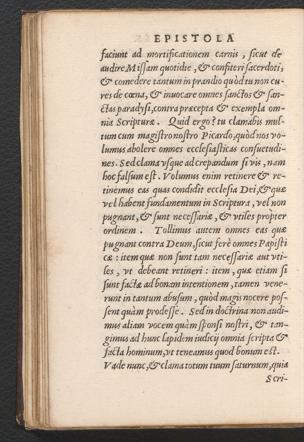 EPISTOLA
faciunt ad mortificationem carnis, sicut de
audire Missam quotidie, & confiteri sacerdoti,
& comedere tantum in prandio quòd tu non cu-
res de cœna, & inuocare omnes sanctos & san-
ctas paradysi, contra præcepta & exempla om-
nia Scripturæ. Quid ergo? tu clamabis mul-
tum cum magistro nostro Picardo, quòd nos vo-
lumus abolere omnes ecclesiasticas consuetudi-
nes. Sed clama vsque ad crepandum si vis, nam
hoc falsum est. Volumus enim retinere & re-
tinemus eas quas condidit ecclesia Dei, & quæ
vel habent fundamentum in Scriptura, vel non
pugnant, & sunt necessariæ, & vtiles pròpter
ordinem. Tollimus autem omnes eas quæ
pugnant contra Deum, sicut ferè omnes Papisti
cæ: item quæ non sunt tam necessariæ aut vti-
les, vt debeant retineri: item, quæ etiam si
sunt factæ ad bonam intentionem, tamen vene-
runt in tantum abusum, quòd magis nocere pos-
sent quàm prodesse. Sed in doctrina non audi-
mus aliam vocem quàm sponsi nostri, & tan-
gimus ad hunc lapidem iudicij omnia scripta &
facta hominum, vt teneamus quod bonum est.
Vade nunc, & clama totum tuum saturnum, quia
Scri-